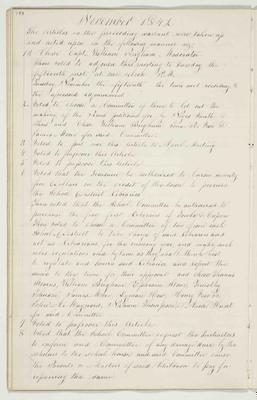 November 1842
The Articles in the preceding warrant were taken up
and acted upon in the following manner viz
1st Chose Capt. William Brigham Moderator
Then voted to adjourn this meeting to Tuesday the
fifteenth inst. at one o'clock P.M.
Tuesday November the fifteenth the town met according to
the adjournment
2 Voted to choose a Committee of three to let out the
making of the Road petitioned for by
and Chose William Brigham
for said Committee
3 Voted to put over this Article to March Meeting
4 Voted to passover this Article
5 Voted to passover this Article
6 Voted that the Treasurer be authorized to borrow seventy
five Dollars on the credit of the town to purchase
the School District Libraries
Then voted that the School Committee be authorized to
purchase the five first
Then voted to choose a Committee of one from each
School District to take charge of said Libraries and
act as Librarians for the ensuing year and make such
rules regulations and by laws as they shall think best
to regulate and govern said Libraries and report the
same to the town for their approval and Chose
William Brigham Ephraim Howe
for said Committee
7 Voted to passover this Article
8 Voted that the School Committee request the Instructors
to inform said Committee of any damage done by the
scholars to the school house and said Committee cause
the Parents or Masters of said Children to pay for
repairing the same